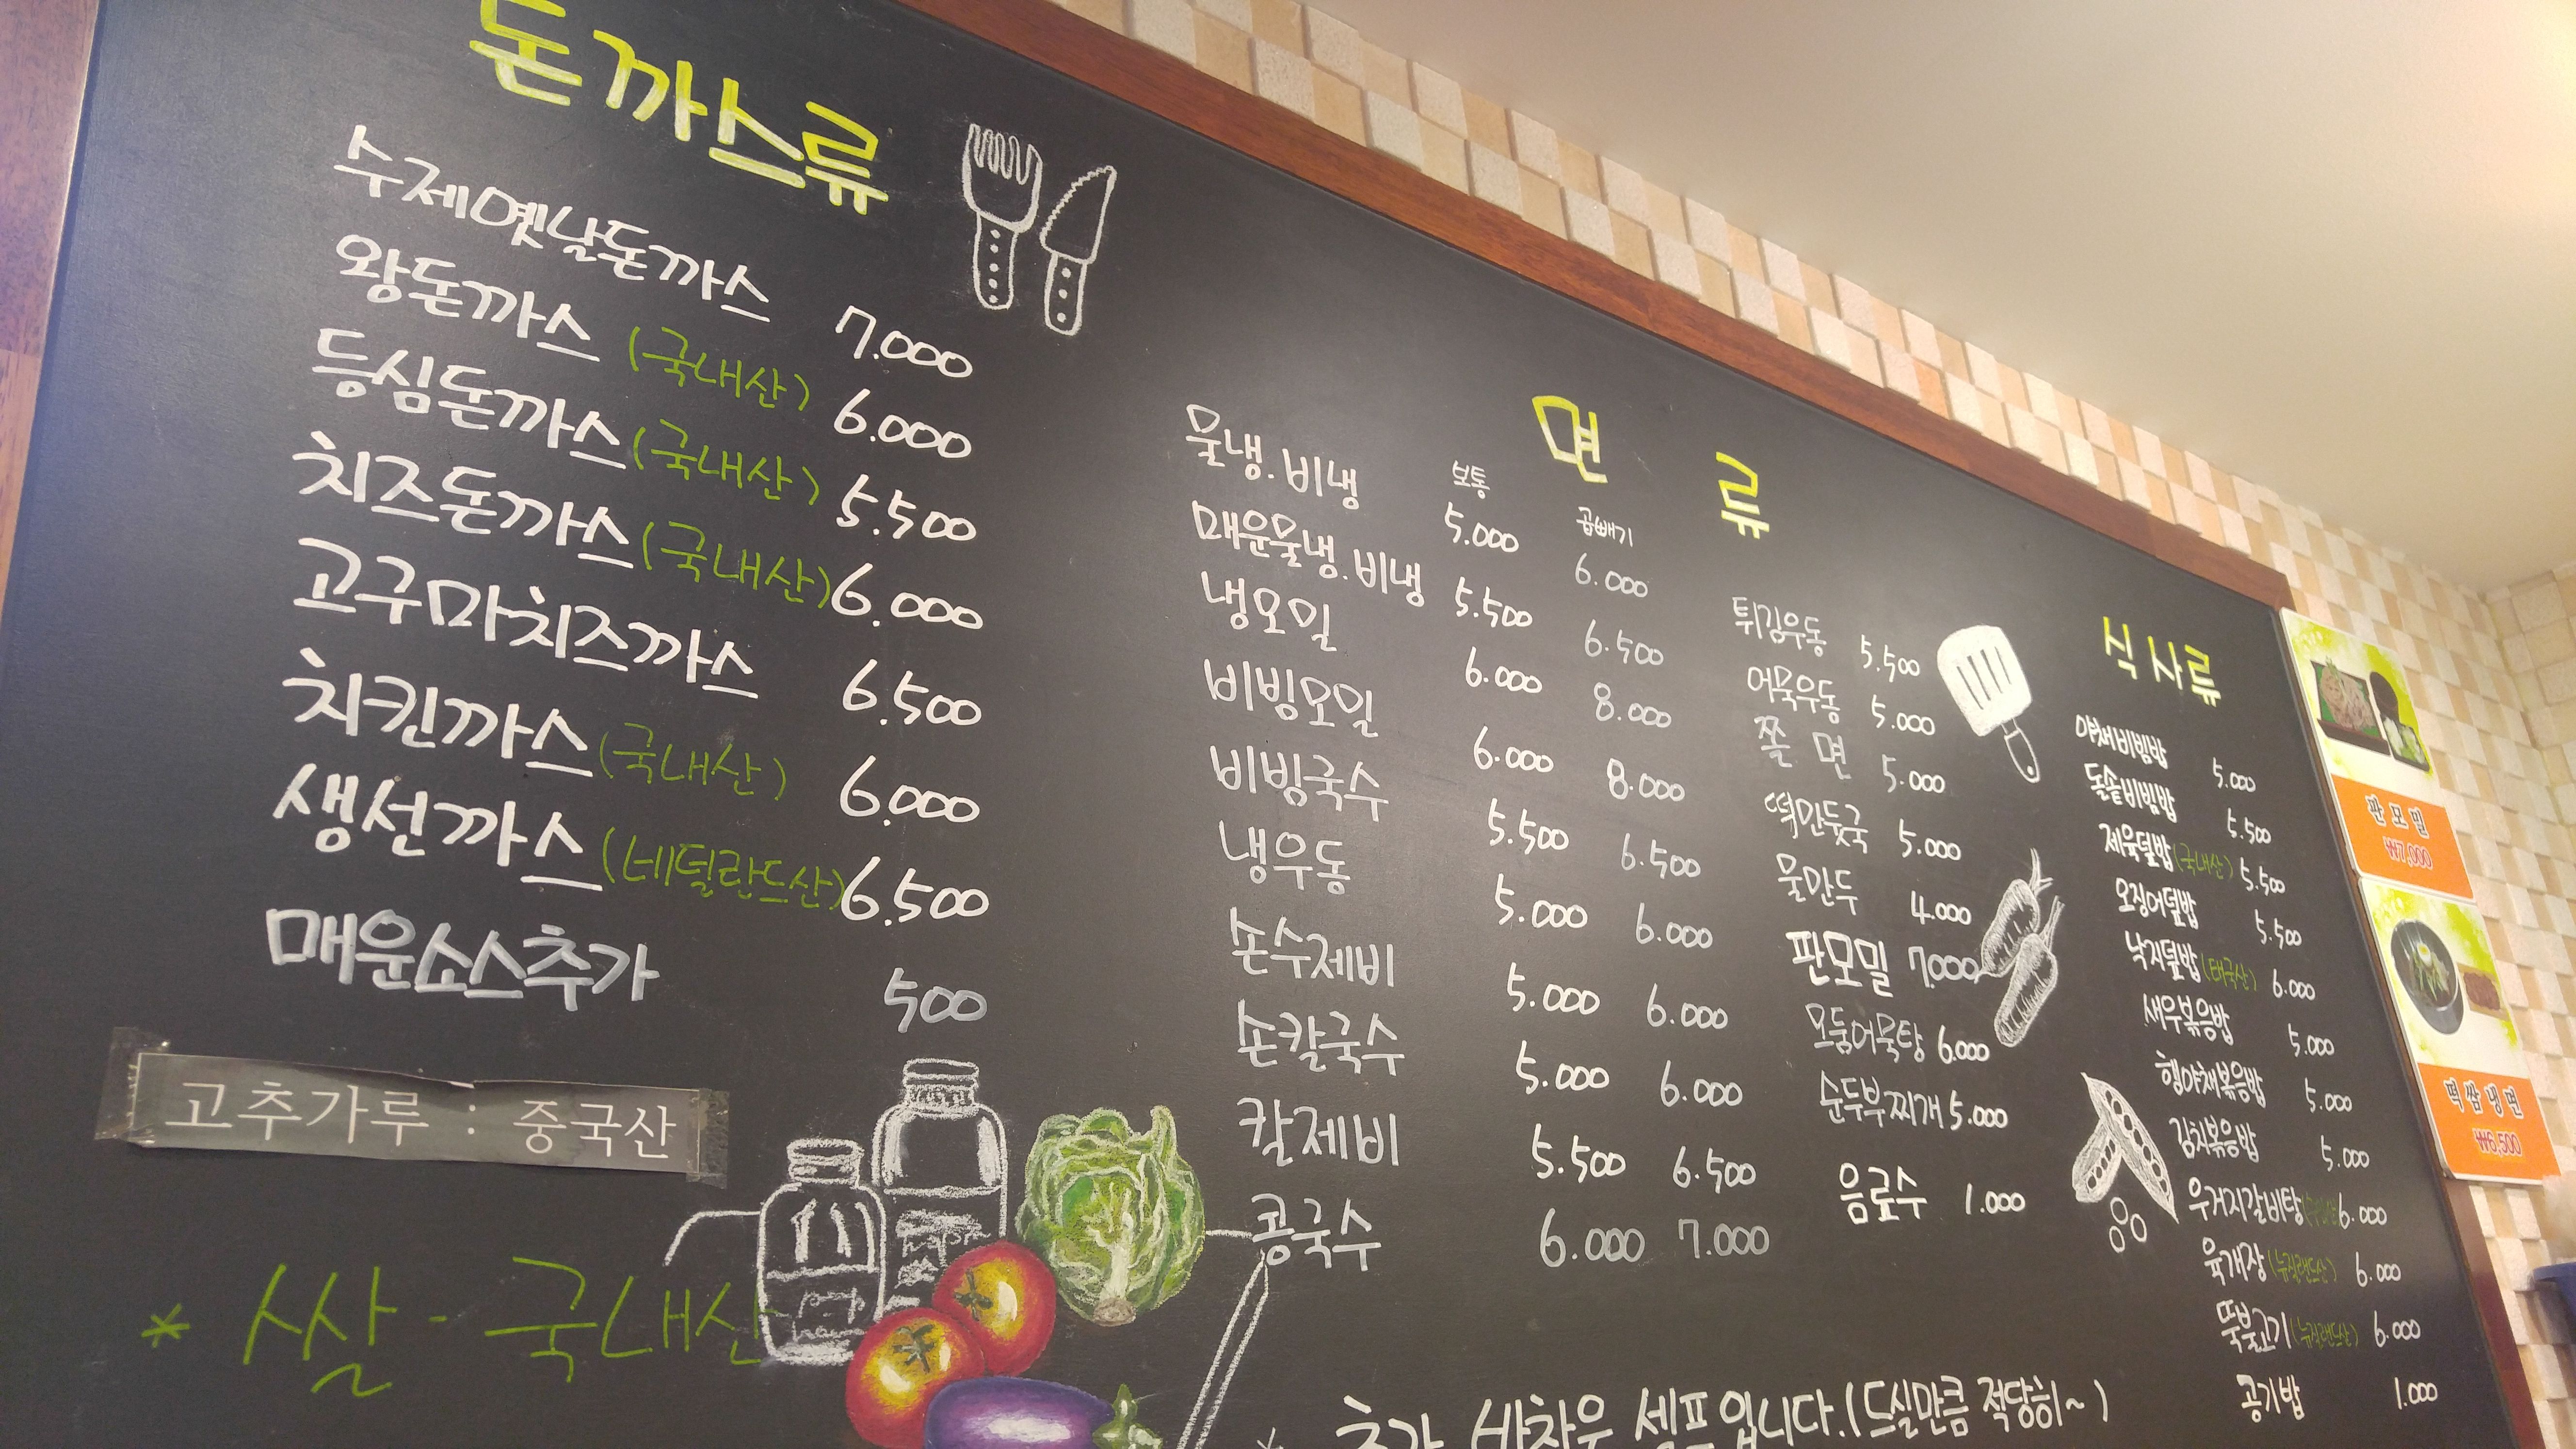 돈까스류
수제옛날돈까스 7.000
왕돈까스 (국내산) 6.000
등심돈까스 (국내산) 5.500
치즈돈까스 (국내산) 6.000
고구마치즈까스 6.500
치킨까스 (국내산) 6.000
생선까스 (네덜란드산) 6.500
매운쇼스추가 500
고추가루 : 중국산
* 쌀 - 국내산
면 류
보통 곱빼기
물냉.비냉 5.000 6.000
매운물냉.비냉 5.500 6.500
냉모밀 6.000 8.000
비빙모밀 6.000 8.000
비빙국수 5.500 6.500
냉우동 5.000 6.000
손수제비 5.000 6.000
손칼국수 5.000 6.000
칼제비 5.500 6.500
콩국수 6.000 7.000
튀김우동 5.500
어묵우동 5.000
쫄 면 5.000
떡만둣국 5.000
물만두 4.000
판모밀 7.000
모둠어묵탕 6.000
순두부찌개 5.000
음료수 1.000
식사류
야채비빔밥 5.000
돌솥비빔밥 5.500
제육덮밥 (국내산) 5.500
오징어덮밥 5.500
낙지덮밥 (태국산) 6.000
새우볶음밥 5.000
햄야채볶음밥 5.000
김치볶음밥 5.000
우거지갈비탕 6.000
육개장 (뉴질랜드산) 6.000
뚝불고기 (뉴질랜드산) 6.000
공기밥 1.000
* 추가 반찬은 셀프입니다.(드실만큼 적당히~)
판모밀
₩7,000
떡쌈냉면
₩6,500